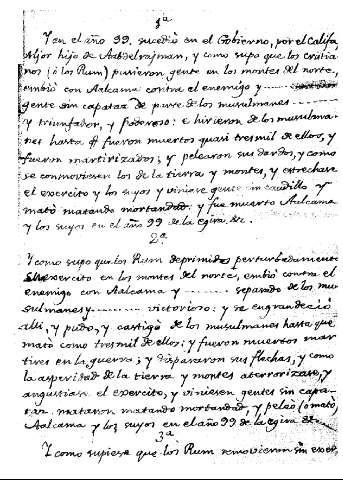 1ª
Y en el año 99. sucedió en el Gobierno, por el Califa
Aljor hijo de Aabdelrajman, y como supo que los cristia
nos (ò los Rum) pusieron gente en los montes del norte,
embió con Aalcama contra el enemigo y
gente sin capataz de parte de los musulmanes
y triunfador, y poderoso: e hirieron de los musulma-
nes hasta fueron muertos quasi tres mil de ellos, y
fueron martirizados; y pelearon sus dardos, y como
se conmoviesen los de la tierra y montes, y estrechase
el exercito y los suyos y viniese gente sin caudillo y
mató matando mortandad. y fue muerto Aalcama
y los suyos en el año 99 de la egira &c.
2ª
Y como supo que los Rum deprimidos perturbadamente
su exercito en los montes del norte, embió contra el
enemigo con Aalcama y ------- separado de los mu
sulmanes y --------- victorioso: y se engrandeció
alli, y pudo, y castigó de los musulmanes hasta que
mató como tres mil de ellos: y fueron muertos mar
tires en la guerra; y dispararon sus flechas, y como
la asperidad de la tierra y montes aterrorizase, y
angustiase el exercito, y viniesen gentes sin capa-
taz. mataron matando mortandad, y peleó (o mató)
Aalcama y los suyos en el año 99 de la egira &c.
3ª
Y como supiese que los Rum removieron sin exer